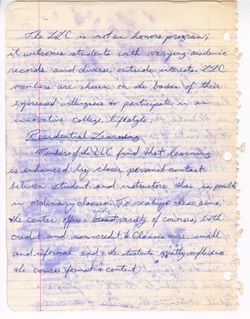 The LLC is not an honors program;
it welcomes students with varying academic
records and diverse outside interests. LLC
members are chosen on the basis of their
expressed willingness to participate in an
innovative college lifestyle
Residential Learning
Members of the LLC find that learning
is enhanced by closer personal contact
between student and instructors than is possible
in ordinary classes. To realize these aims,
the center offers a variety of courses, both
credit and non credit. Classes are small
and informal and the students greatly influence
the course format & content